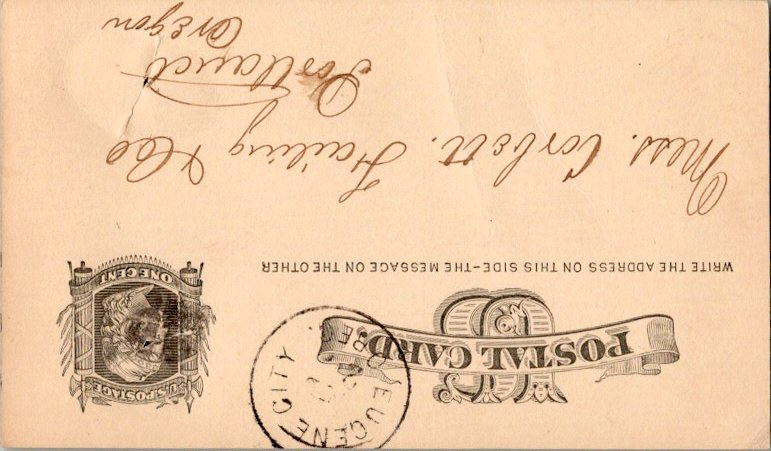 POSTAL CARD.
U.S. POSTAGE
ONE CENT
EUGENE CITY
ORE
WRITE THE ADDRESS ON THIS SIDE-THE MESSAGE ON THE OTHER
Mess. Corbett. Failing & Co
Portland
Oregon